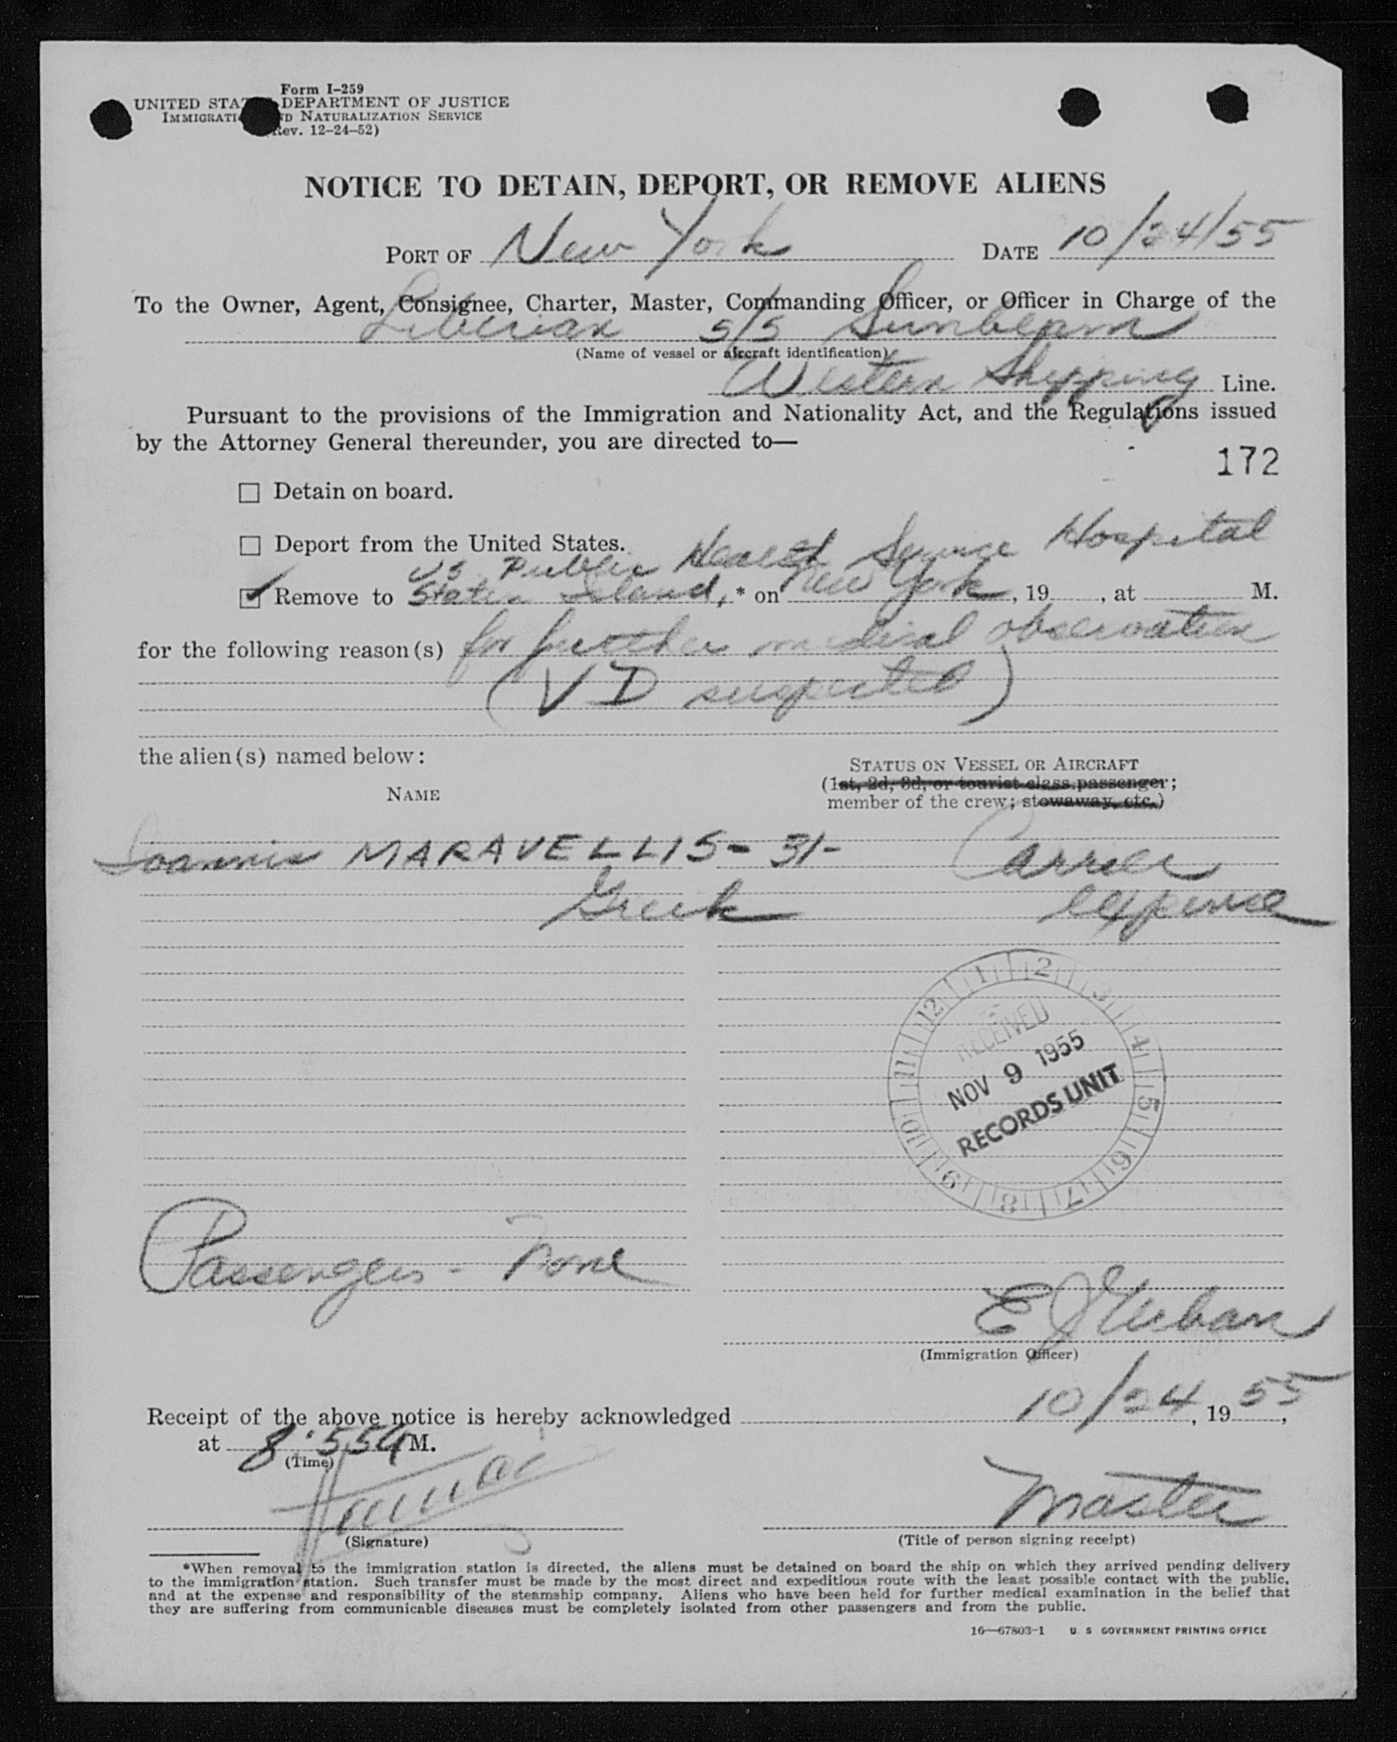 Form I-259
UNITED STATES DEPARTMENT OF JUSTICE
IMMIGRATION AND NATURALIZATION SERVICE
(Rev. 12-24-52)
NOTICE TO DETAIN, DEPORT, OR REMOVE ALIENS
PORT OF New York DATE 10/24/55
To the Owner, Agent, Consignee, Charter, Master, Commanding Officer, or Officer in Charge of the
Liberian S/S Sunbeam
(Name of vessel or aircraft identification)
Western Shipping Line.
Pursuant to the provisions of the Immigration and Nationality Act, and the Regulations issued
by the Attorney General thereunder, you are directed to—
172
☐ Detain on board.
☐ Deport from the United States.
US Public Health Service Hospital
☑ Remove to Staten Island, * on New York, 19 , at M.
for the following reason(s) for further medical observation
(VD suspected)
the alien(s) named below:
STATUS ON VESSEL OR AIRCRAFT
(1st, 2d, 3d, or tourist class passenger;
NAME
member of the crew; stowaway, etc.)
Ioannis MARAVELLIS - 31 - Carrier
Greek expense
12 1 2 3 4 5 6 7 8 9 10 11
RECEIVED
NOV 9 1955
RECORDS UNIT
Passengers - None
E J Urban
(Immigration Officer)
Receipt of the above notice is hereby acknowledged 10/24, 1955,
at 8:55 A M.
(Time)
Master
(Signature) (Title of person signing receipt)
*When removal to the immigration station is directed, the aliens must be detained on board the ship on which they arrived pending delivery
to the immigration station. Such transfer must be made by the most direct and expeditious route with the least possible contact with the public,
and at the expense and responsibility of the steamship company. Aliens who have been held for further medical examination in the belief that
they are suffering from communicable diseases must be completely isolated from other passengers and from the public.
16—67803-1 U. S. GOVERNMENT PRINTING OFFICE